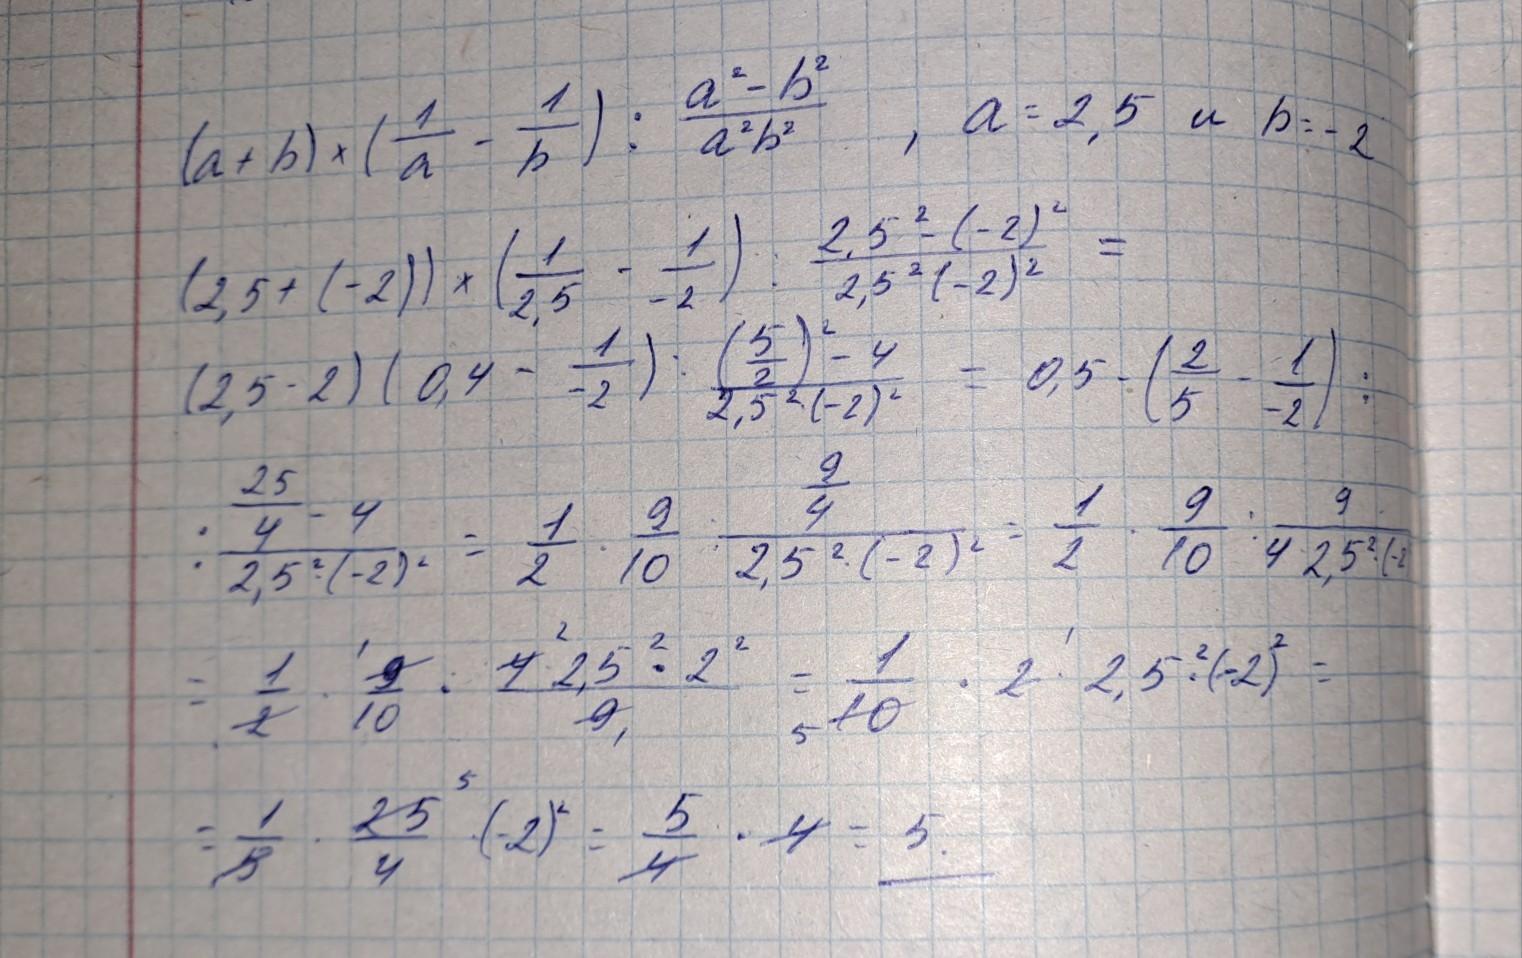 (a + b) × (1/a - 1/b) : (a² - b²)/(a²b²) , a = 2,5 и b = -2
(2,5 + (-2)) × (1/2,5 - 1/-2) : (2,5² - (-2)²)/(2,5² (-2)²) =
(2,5 - 2) (0,4 - 1/-2) : ((5/2)² - 4)/(2,5² · (-2)²) = 0,5 - (2/5 - 1/-2) :
: (25/4 - 4)/(2,5² · (-2)²) = 1/2 · 9/10 : (9/4)/(2,5² · (-2)²) = 1/2 · 9/10 : 9/(4 2,5² · (-2
= 1/2 · 9/10 · (4 2,5² · 2²)/9 = 1/10 · 2 · 2,5² · (-2)² =
= 1/5 · 25/4 · (-2)² = 5/4 · 4 = 5.